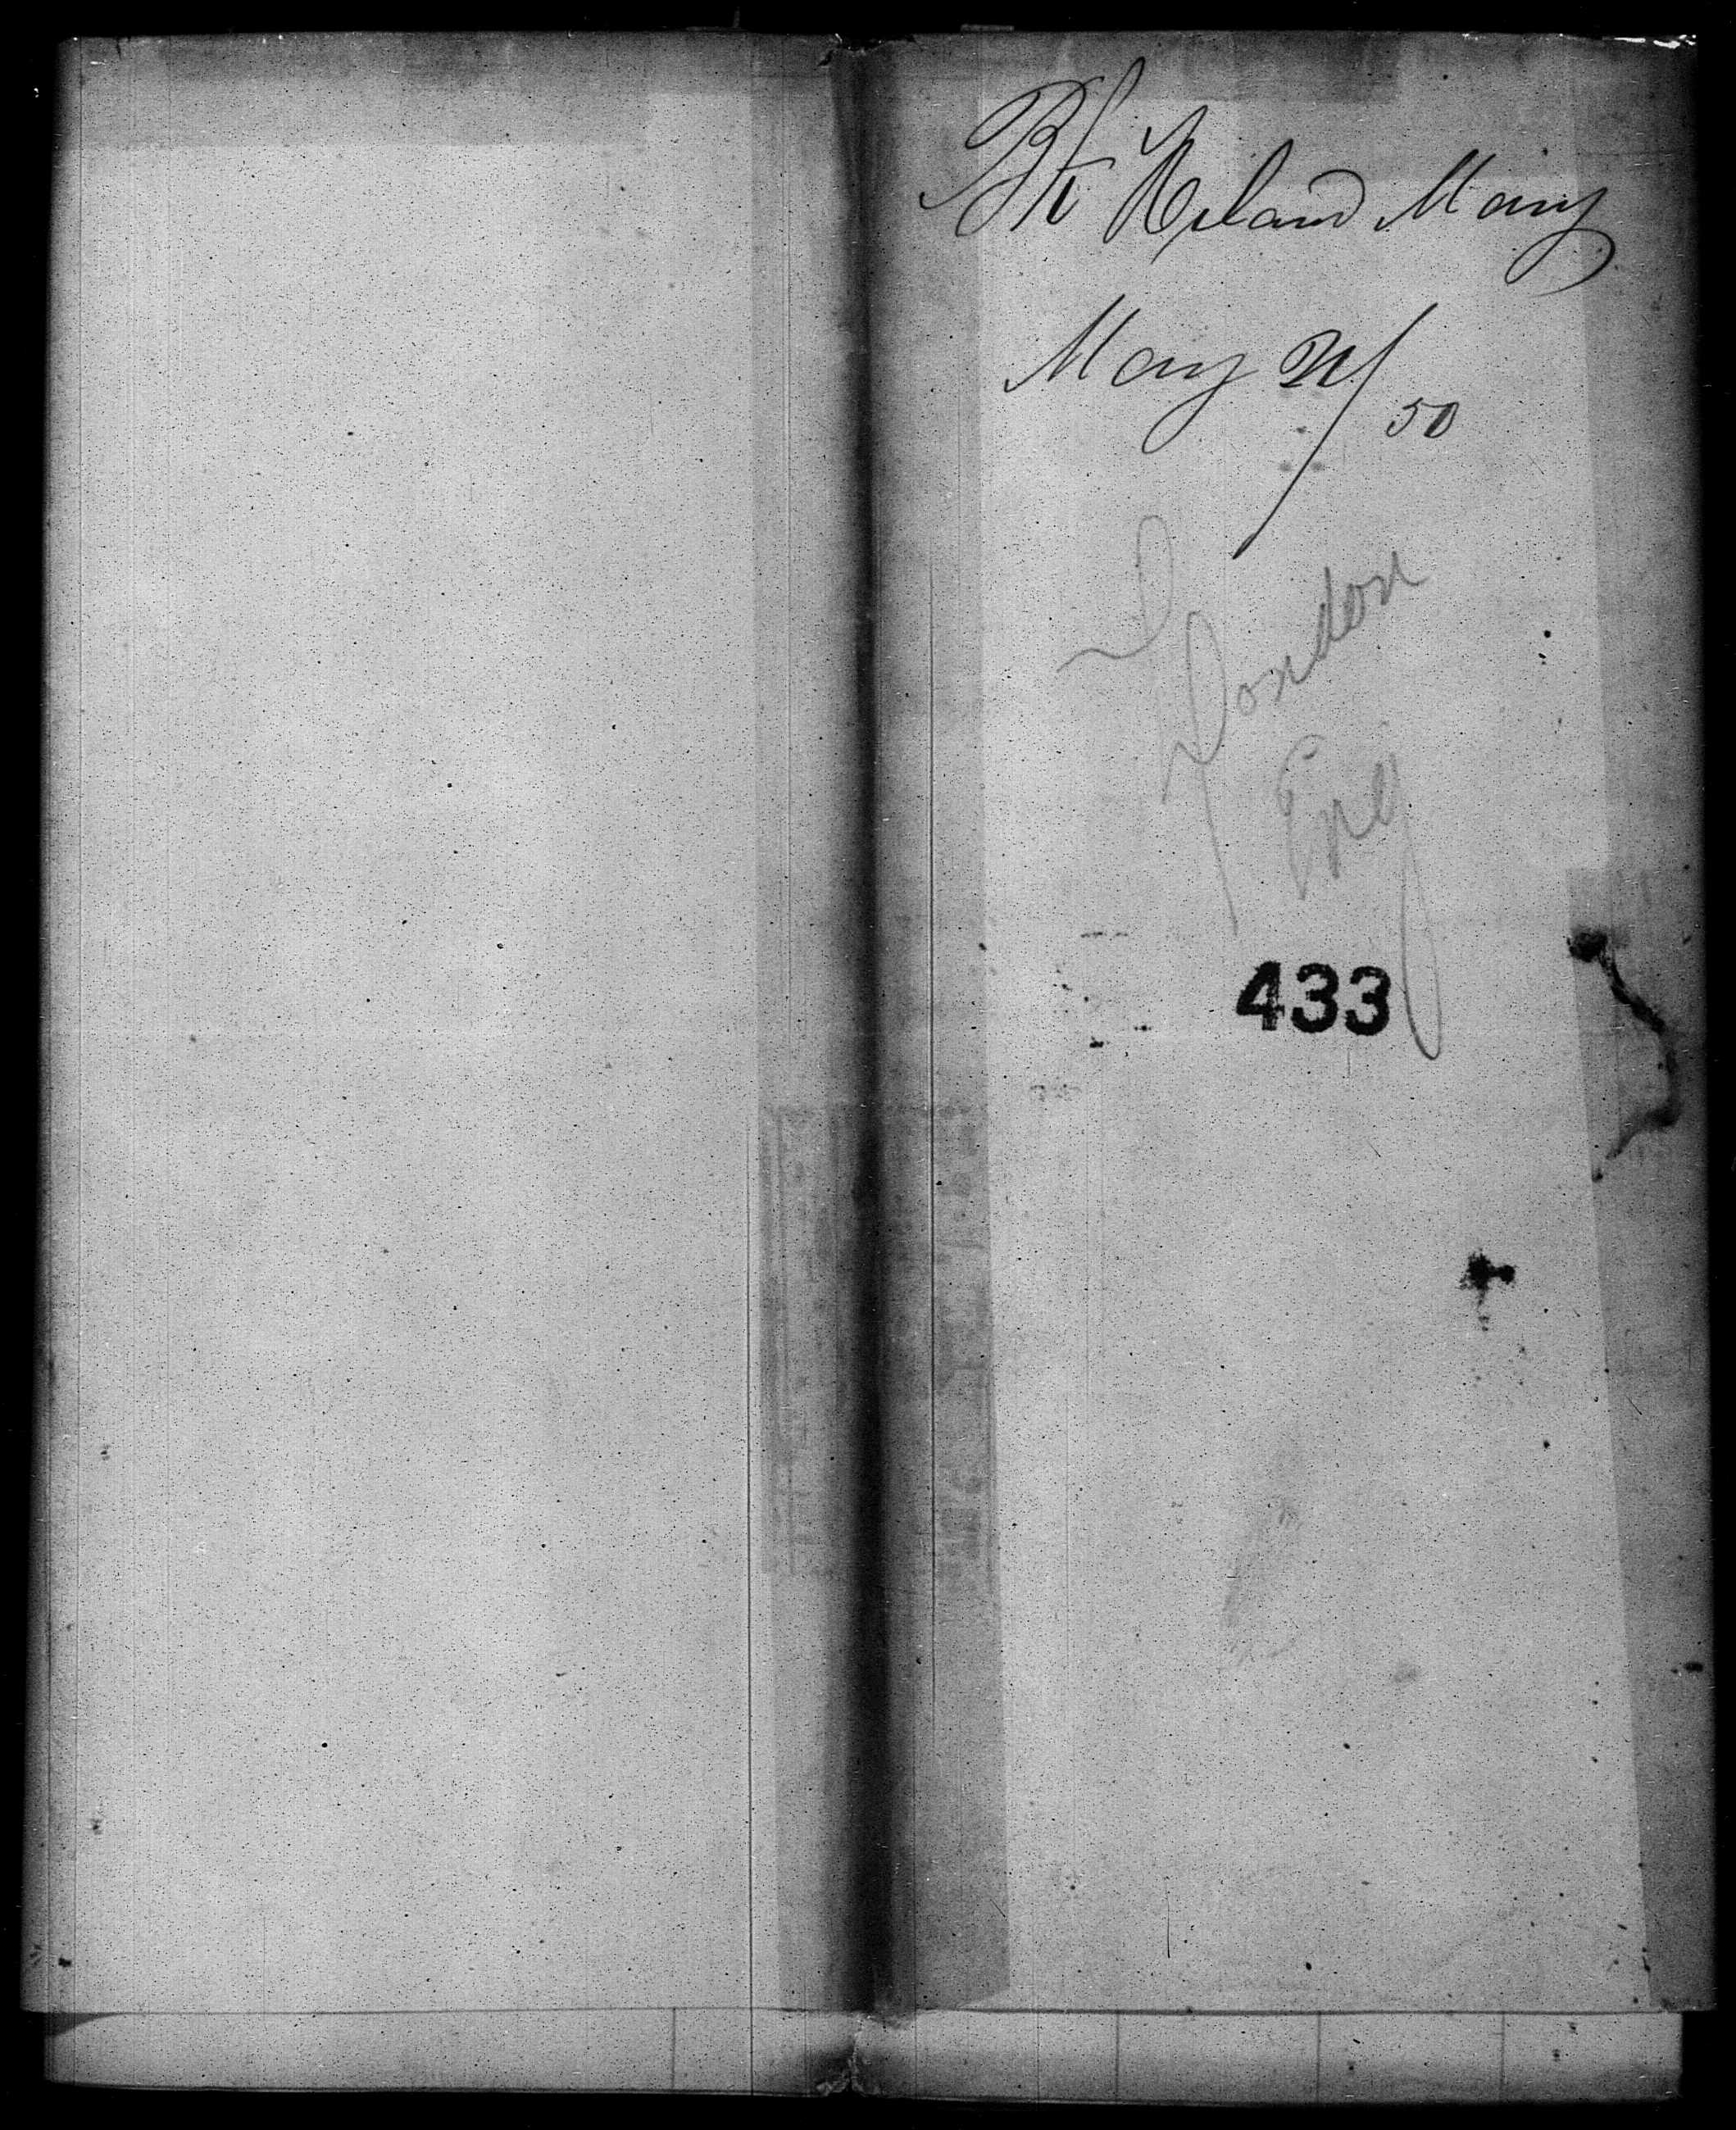 Bk Roland Mary
May 21/50
London
Eng
433